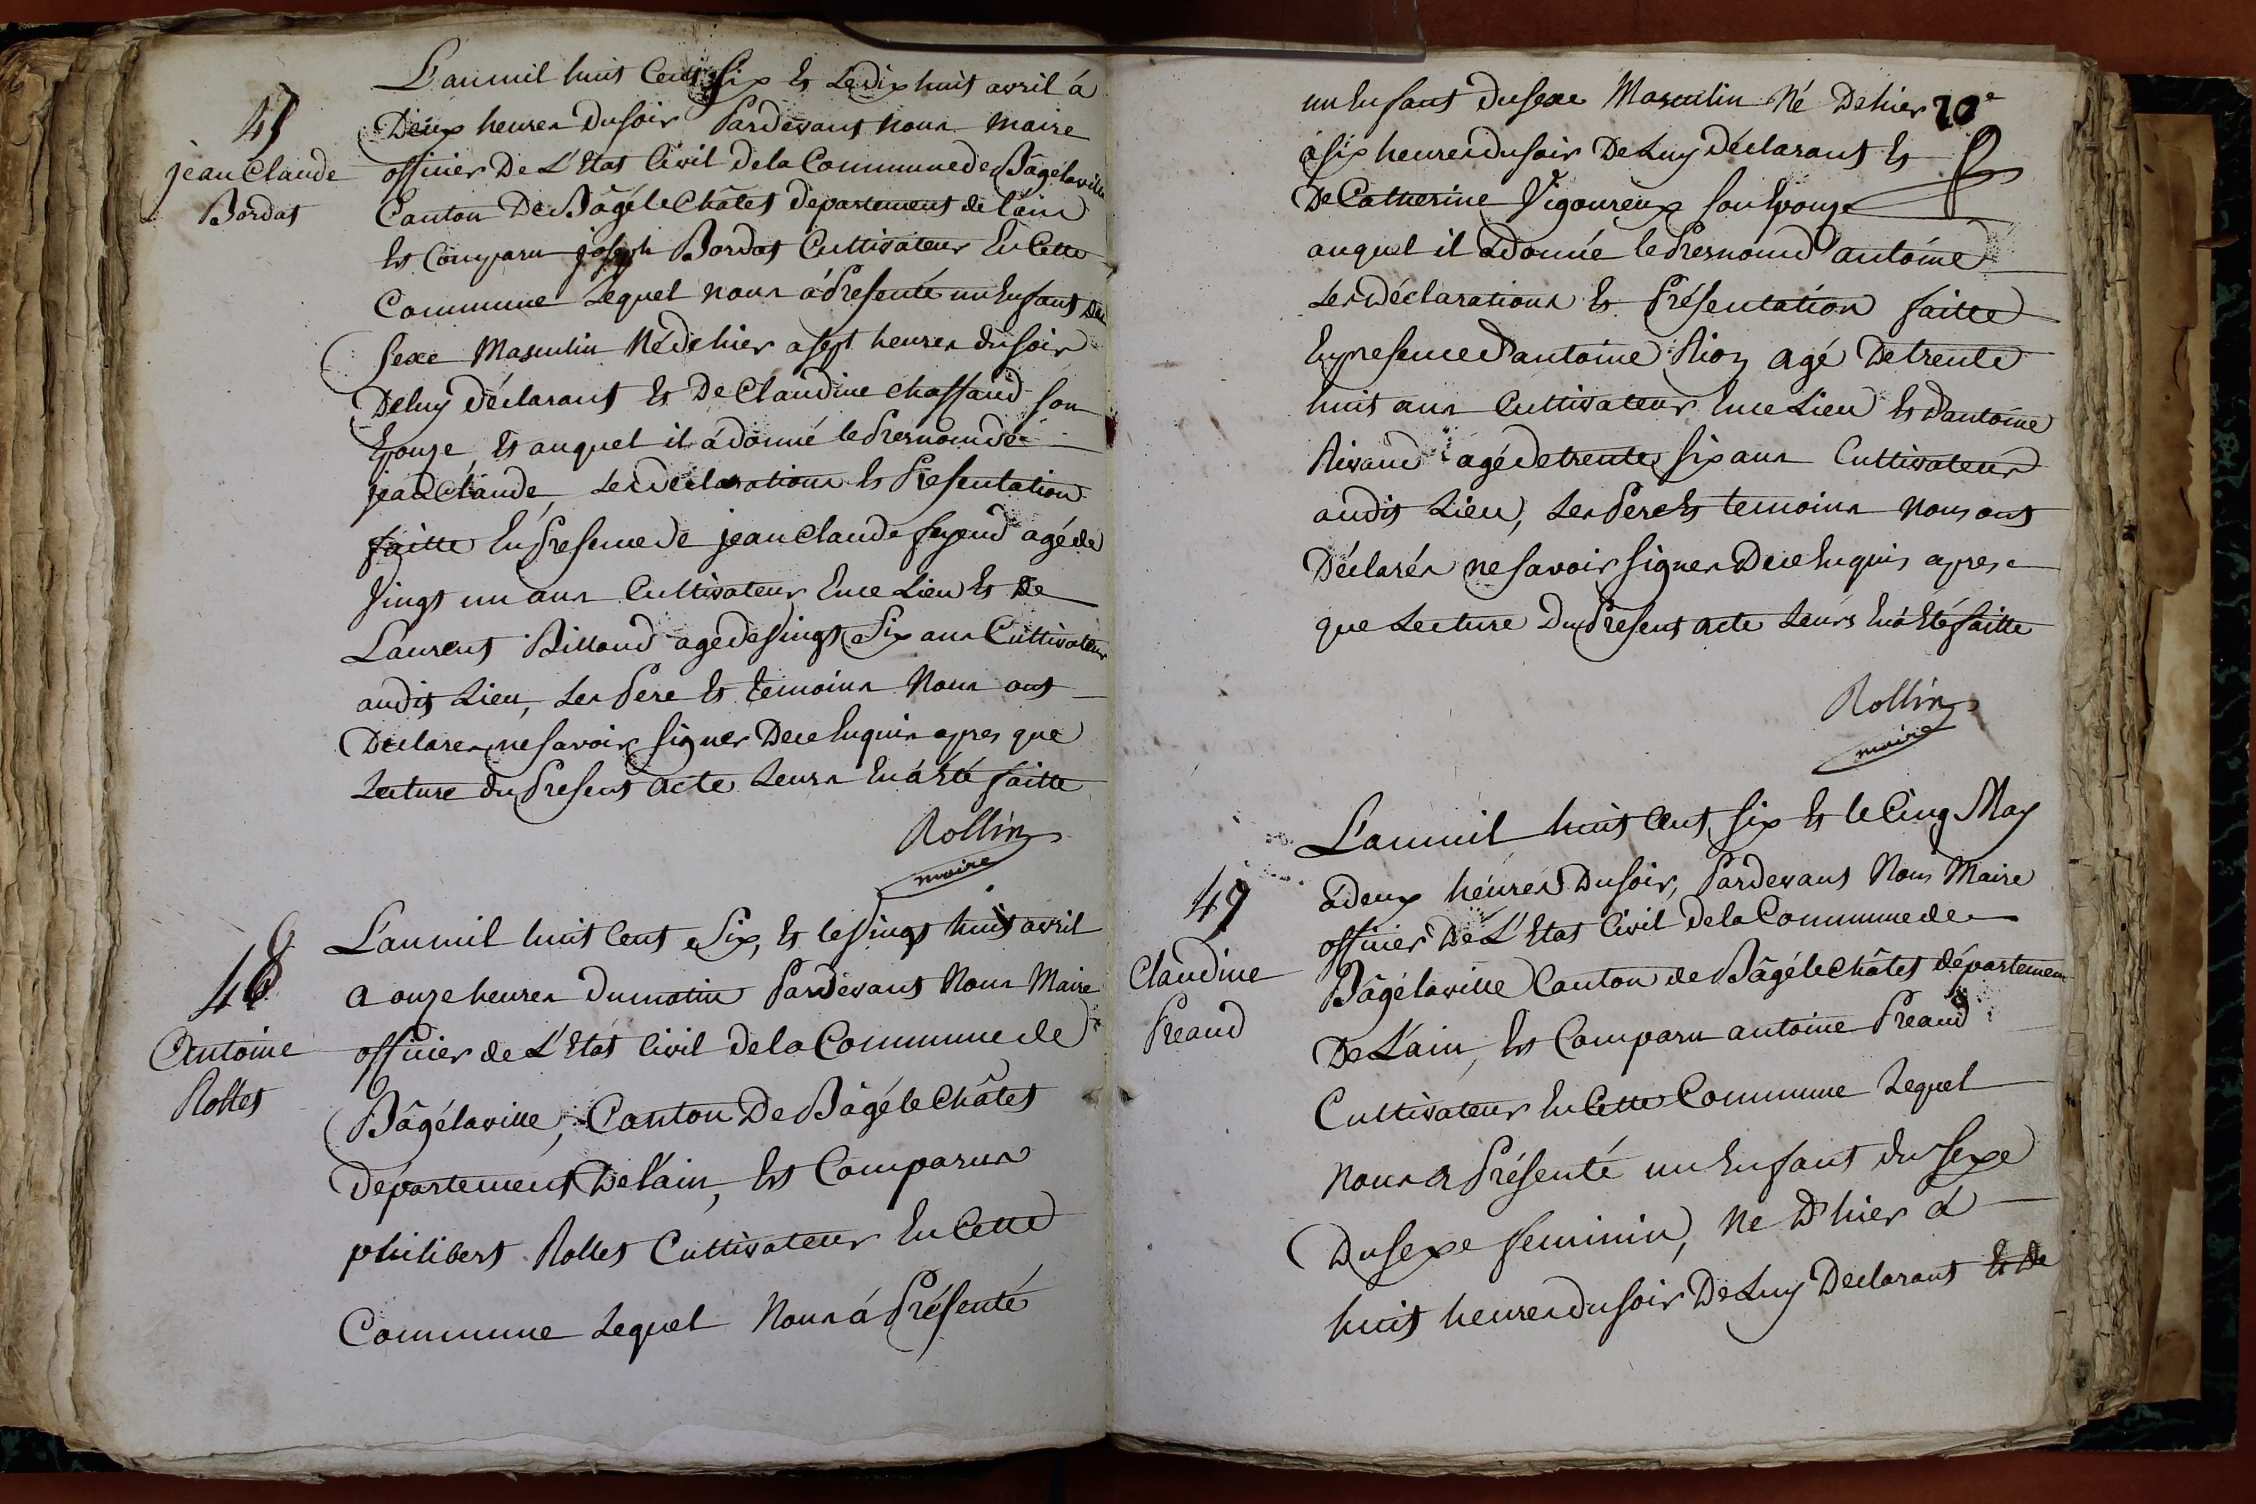 L'an mil huit Cent Six Et Le dix huit avril á
47
Deux heures du soir Pardevant Nous Maire
jean Claude
officier De L'Etat Civil de la Commune de Bâgélaville
Bordat
Canton De Bâgé le Châtel département de l'ain
Est Comparu joseph Bordat Cultivateur En Cette
Commune Lequel nous á Présenté un Enfant Du
Sexe Masculin Né de hier a sept heures du soir
De luy déclarant Et De Claudine Chassaud son
Epouze Et auquel il á donné le Presnom de
jean Claude, Les déclarations Et Presentation
faitte En Presence de jean Claude feyeud agé de
Vingt un ans Cultivateur En ce Lieu Et De
Laurent Billoud agé de Vingt Six ans Cultivateur
audit Lieu, Les Pere Et temoins Nous ont
Déclarer ne savoir signer De ce Enquis apres que
Lecture du Present acte Leurs En á Eté faitte
Rollin
maire
L'an mil huit Cent Six, Et le Vingt huit avril
48
a onze heures du matin Pardevant Nous Maire
Antoine
officier de L'Etat Civil de la Commune de
Rollet
Bâgélaville, Canton De Bâgé le Châtel
département De l'ain, Est Comparus
philibert Rollet Cultivateur En Cette
Commune Lequel Nous á Présenté
un Enfant du sexe Masculin Né De hier 20e
á six heures du soir De Luy déclarant Et
De Catherine Vigoureux son Epouze
auquel il á donné le Presnomd antoine
Les déclarations Et Présentation faitte
En presence d'antoine Rion agé De trente
huit ans Cultivateur En ce Lieu Et d'antoine
Rivaud agé de trente six ans Cultivateur
audit Lieu, Les Pere Et temoins Nous ont
Déclarés ne savoir signer De ce Enquis apres
que Lecture Du Present acte Leurs En á Eté faitte
Rollin
maire
L'an mil huit Cent Six Et le Cinq May
49
á deux heures Du soir, Pardevant Nous Maire
officier De L'Etat Civil de la Commune de
Claudine
Bâgélaville Canton de Bâgé le Châtel département
Preaud
De L'ain, Est Comparu antoine Preaud
Cultivateur En Cette Commune Lequel
Nous a Présenté un Enfant du sexe
Du sexe feminin, Ne D'hier á
huit heures du soir De Luy Declarant Et De